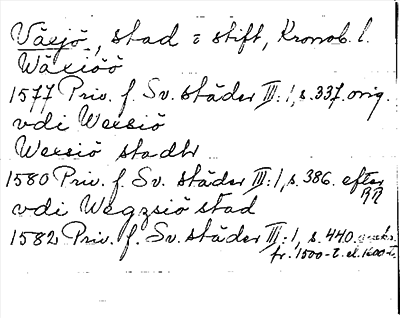 Växjö, stad i stift, Kronob. l.
Wäxiöö
1577 Priv. f. Sv. städer III:1, s. 337. orig.
vdi Wexsiö
Wexsiö stadtr
1580 Priv. f. Sv. städer III:1, s. 386. efter
RR
vdi Wegzsiö stad
1582 Priv. f. Sv. städer III:1, s. 440.
fr. 1500-t. el. 1600-t.